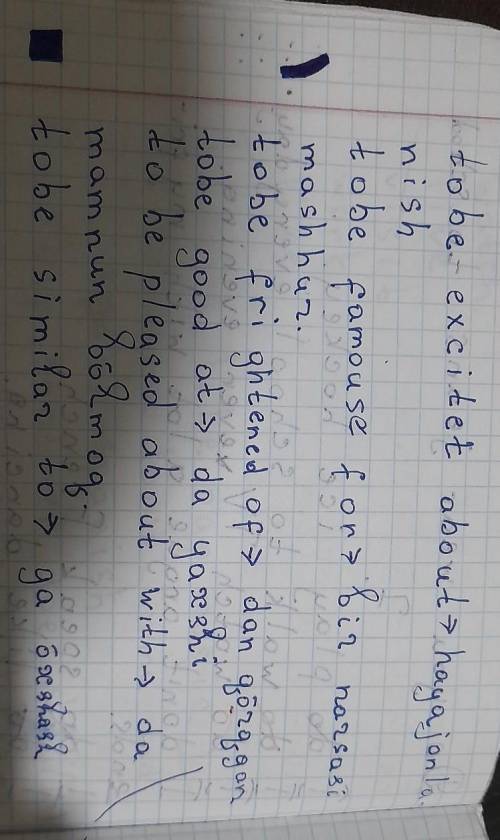 to be - excitet about → hayajonla
nish
to be famouse for → bir narsasi
mashhur.
to be frightened of → dan qŏrqqan
tobe good at → da yaxshi
to be pleased about with → da
mamnun bŏlmoq.
to be similar to → ga ŏxshash